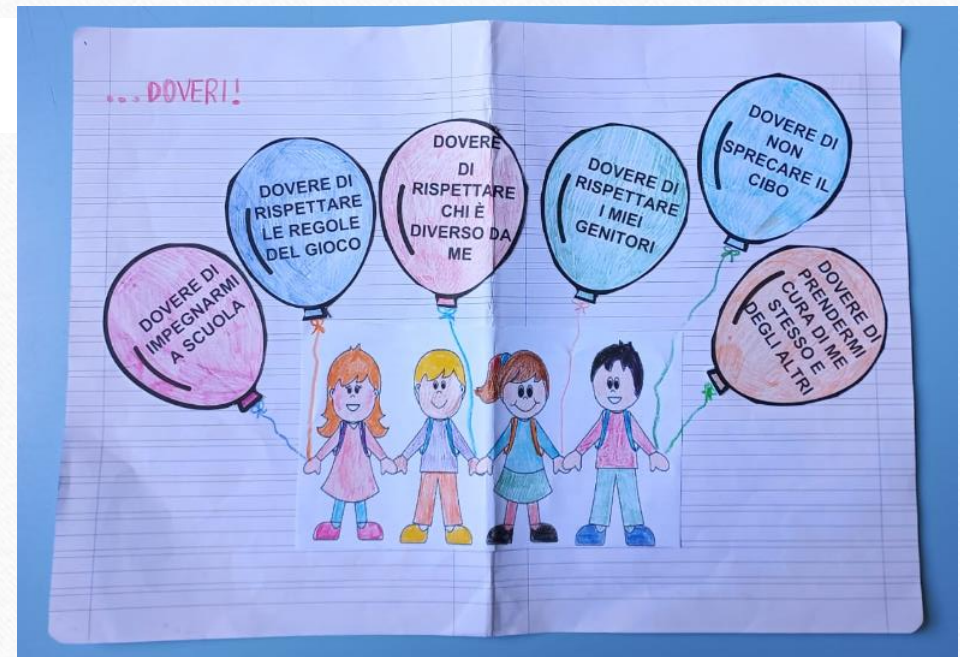 ...DOVERI!
DOVERE DI
IMPEGNARMI
A SCUOLA
DOVERE DI
RISPETTARE
LE REGOLE
DEL GIOCO
DOVERE
DI
RISPETTARE
CHI È
DIVERSO DA
ME
DOVERE DI
RISPETTARE
I MIEI
GENITORI
DOVERE DI
NON
SPRECARE IL
CIBO
DOVERE DI
PRENDERMI
CURA DI ME
STESSO E
DEGLI ALTRI